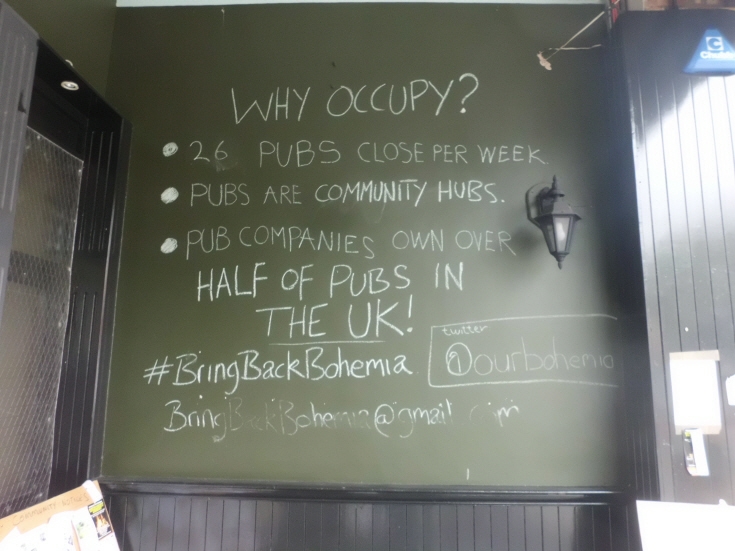 WHY OCCUPY?
26 PUBS CLOSE PER WEEK.
PUBS ARE COMMUNITY HUBS.
PUB COMPANIES OWN OVER
HALF OF PUBS IN
THE UK!
#BringBackBohemia
twitter
@ourbohemia
BringBackBohemia@gmail.com
Chubb